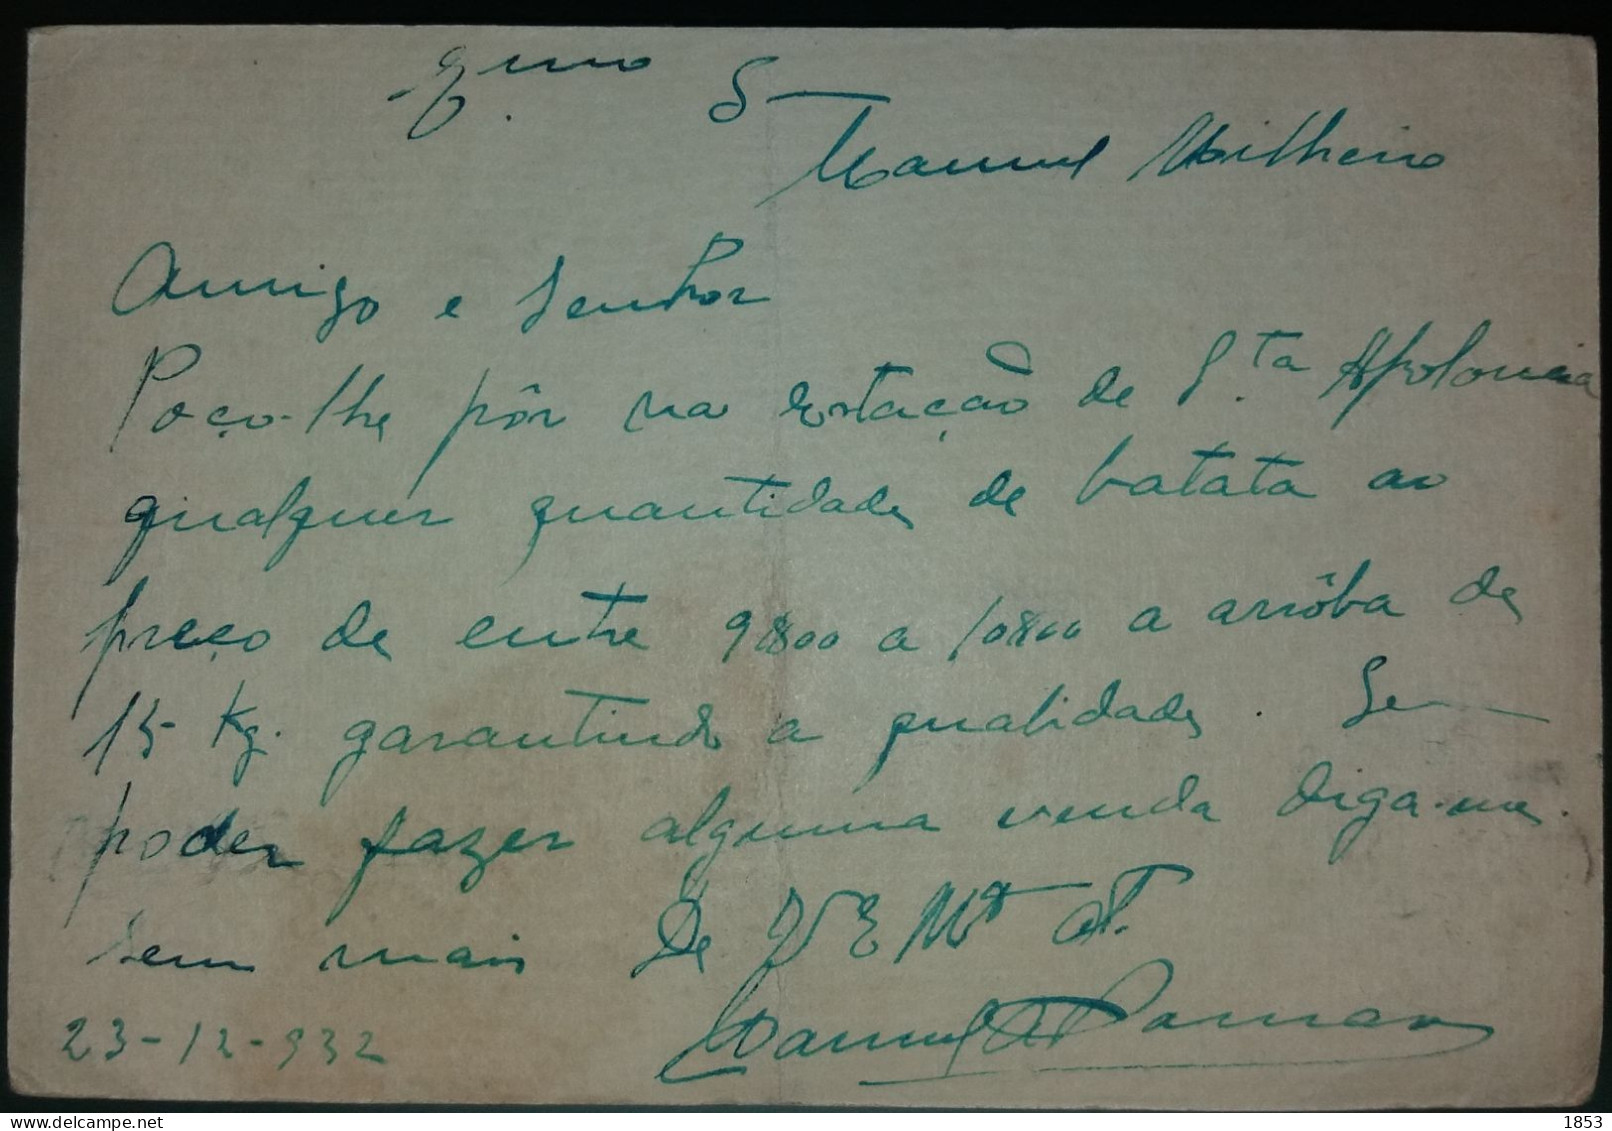 Exmo Sr
Manuel Milheiro
Amigo e Senhor
Poço-lhe pôr na estação de S.ta Apolonia
qualquer quantidade de batata ao
preço de entre 9$00 a 10$00 a arrôba de
15 Kg. garantindo a qualidade. Se
poder fazer alguma venda diga-me.
sem mais De V E Mto At.
Manuel
23-12-932
delcampe.net
1853